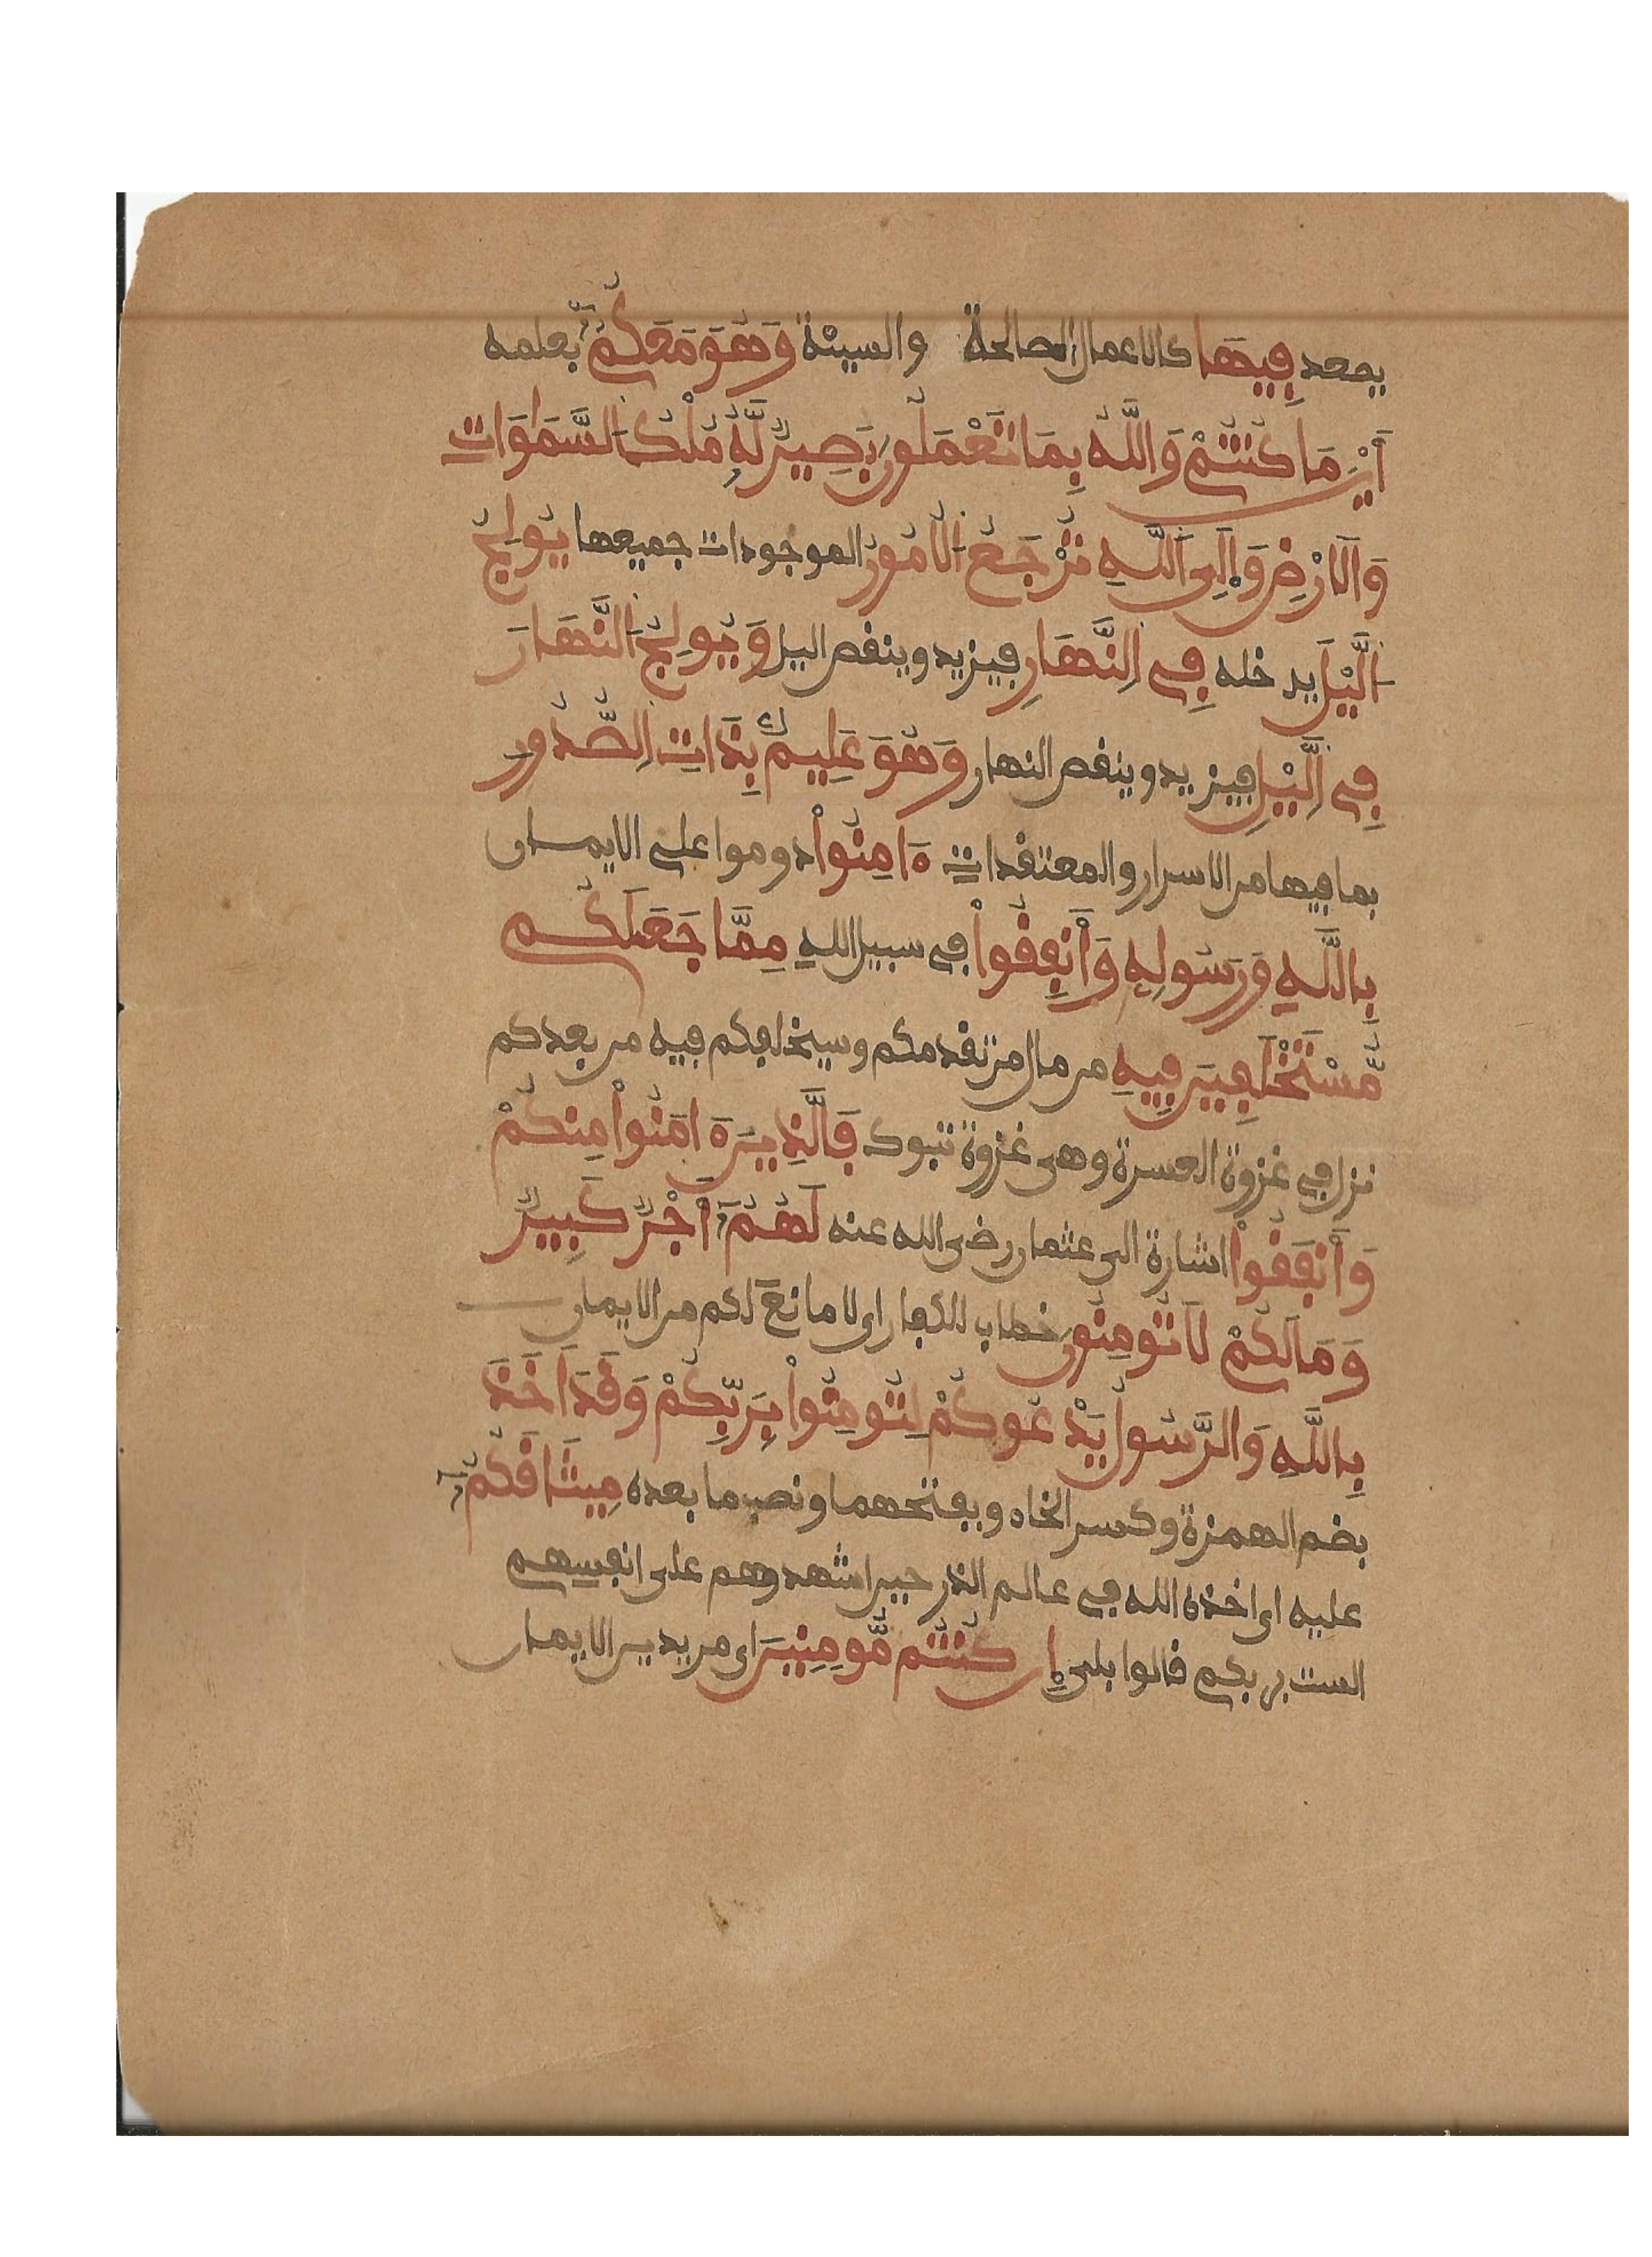 يصعد فِيهَا كالاعمال الصالحة والسيئة وَهُوَ مَعَكُمُۥٓ بعلمه
أَيْنَ مَا كُنتُمْ وَاللَّهُ بِمَا تَعْمَلُونَ بَصِيرٌ لَّهُۥ مُلْكُ السَّمَٰوَاتِ
وَالَارْضِ وَإِلَى اَللَّهِ تُرْجَعُ الُامُورُ الموجودات جميعها يُولِجُ
اُلَّيْلَ يدخله فِي اِلنَّهَارِ فيزيد وينقص اليل وَيُولِجُ النَّهَارَ
فِي اِلَّيْلِ فيزيد وينقص النهار وَهُوَ عَلِيمٌ بِذَاتِ اِلصُّدُورِ
بما فيها من الاسرار والمعتقدات ءَامِنُواْ دوموا على الايمان
بِاللَّهِ وَرَسُولِهِ وَأَنفِقُواْ في سبيل الله مِمَّا جَعَلَكُم
مُّسْتَخْلَفِينَ فِيهِ من مال من تقدمكم وسيخلفكم فيه من بعدكم
نزل في غزوة العسرة وهي غزوة تبوك فَالَّذِينَ ءَامَنُواْ مِنكُمْ
وَأَنفَقُواْ اشارة الى عثمان رضي الله عنه لَهُمُۥٓ أَجْرٌ كَبِيرٌ
وَمَا لَكُمْ لَا تُومِنُونَ خطاب للكفار اي لا مانع لكم من الايمان
بِاللَّهِ وَالرَّسُولُ يَدْعُوكُمْ لِتُومِنُواْ بِرَبِّكُمْ وَقَدَ اَخَذَ
بضم الهمزة وكسر الخاء وبفتحهما ونصب ما بعده مِيثَاقَكُمُۥٓ
عليه اي اخذه الله في عالم الذر حين اشهدوهم على انفسهم
الست بربكم قالوا بلى إِن كُنتُم مُّومِنِينَ اي مريدين الايمان